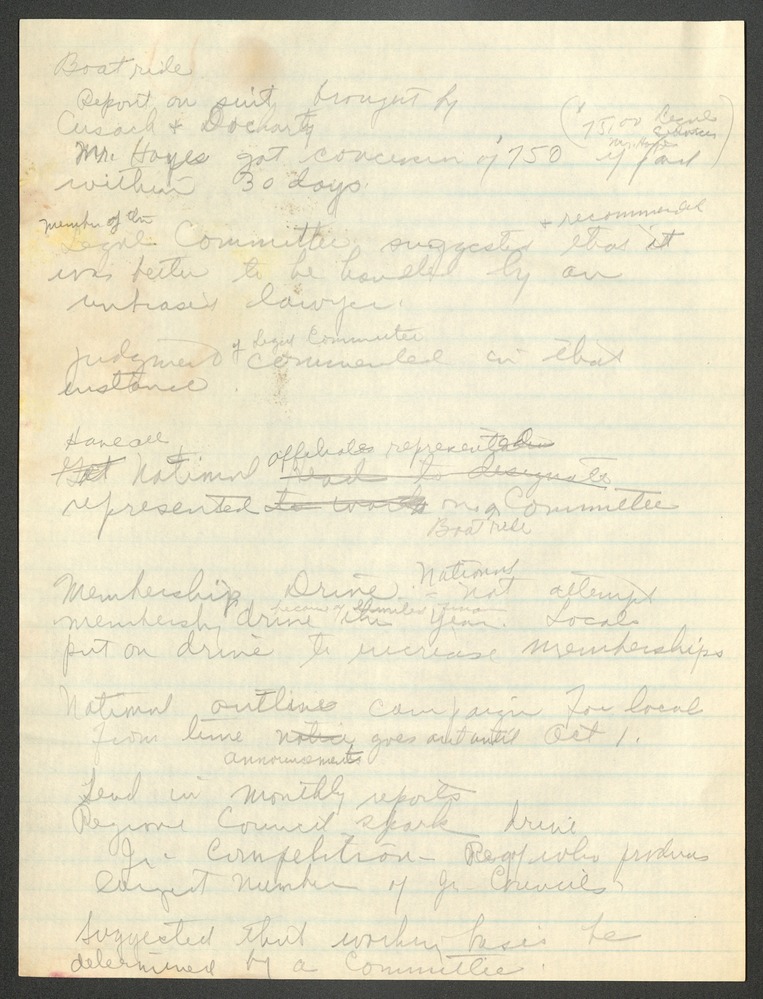 Boat ride
Report on suit brought by
Cusack & Docharty
($75.00 Legal Services Mr. Hayes)
Mr. Hayes got concession of $750 if paid
within 30 days.
member of the
Legal Committee suggested & recommended that it
was better to be handled by an
unbiased lawyer.
Judgment of Legal Committee
commended in that
instance.
Have all
National affiliates represented
represented on a Committee
Boat ride
Membership Drive. National not attempt
membership drive this year. Locals
put on drive to increase memberships
National outlines campaign for local
from time notice goes out until Oct 1.
announcements
Send in monthly reports
Regional Council spark drive
Jr. Competition - Reg. who produces
largest number of Jr Councils
Suggested that working basis be
determined by a Committee.